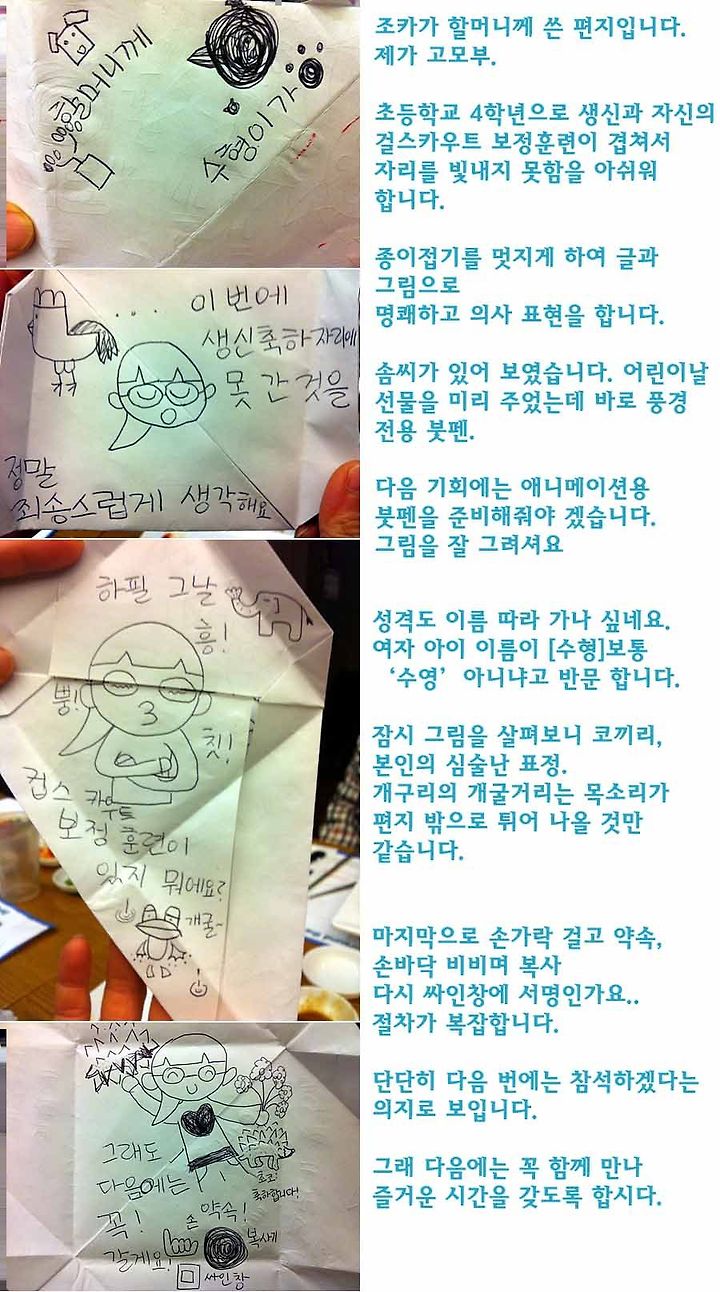 할머니께
수형이가
조카가 할머니께 쓴 편지입니다.
제가 고모부.
초등학교 4학년으로 생신과 자신의
걸스카우트 보정훈련이 겹쳐서
자리를 빛내지 못함을 아쉬워
합니다.
종이접기를 멋지게 하여 글과
그림으로
명쾌하고 의사 표현을 합니다.
솜씨가 있어 보였습니다. 어린이날
선물을 미리 주었는데 바로 풍경
전용 붓펜.
다음 기회에는 애니메이션용
붓펜을 준비해줘야 겠습니다.
그림을 잘 그려셔요
성격도 이름 따라 가나 싶네요.
여자 아이 이름이 [수형]보통
‘수영’ 아니냐고 반문 합니다.
잠시 그림을 살펴보니 코끼리,
본인의 심술난 표정.
개구리의 개굴거리는 목소리가
편지 밖으로 튀어 나올 것만
같습니다.
마지막으로 손가락 걸고 약속,
손바닥 비비며 복사
다시 싸인창에 서명인가요..
절차가 복잡합니다.
단단히 다음 번에는 참석하겠다는
의지로 보입니다.
그래 다음에는 꼭 함께 만나
즐거운 시간을 갖도록 합시다.
... 이번에
생신축하자리에
못 간 것을
정말
죄송스럽게 생각해요
하필 그날
흥!
뿡!
칫!
컵스카우트
보정 훈련이
있지 뭐에요?
개굴~
그래도
다음에는
꼭!
갈게요!
축하합니다!
손 약속!
복사기
싸인창